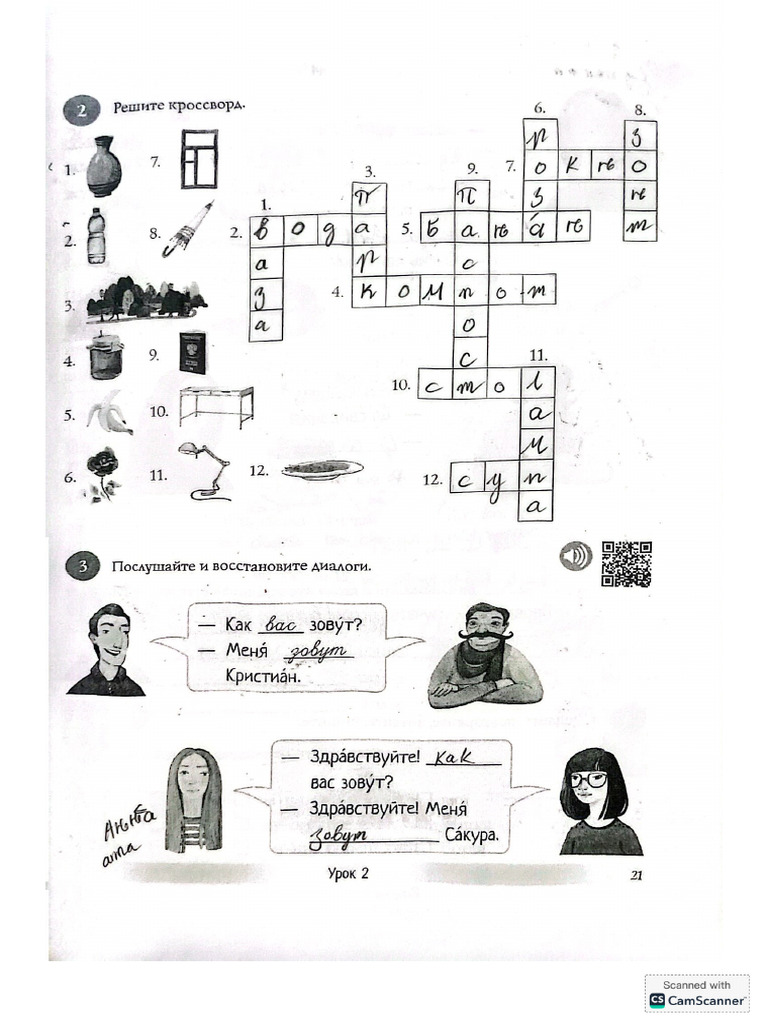 2 Решите кроссворд.
6. 8.
р з
1. 7. 3. 9. 7. о к н о
1. п П з н
2. 8. 2. в о д а 5. б а н а н т
а р с
3. з 4. к о м п о т
а о
4. 9. с 11.
10. с т о л
5. 10. а
м
6. 11. 12. 12. с у п
а
3 Послушайте и восстановите диалоги.
— Как вас зову́т?
— Меня́ зовут
Кристиа́н.
— Здра́вствуйте! как
вас зову́т?
— Здра́вствуйте! Меня́
зовут Са́кура.
Урок 2 21
Scanned with
CS CamScanner